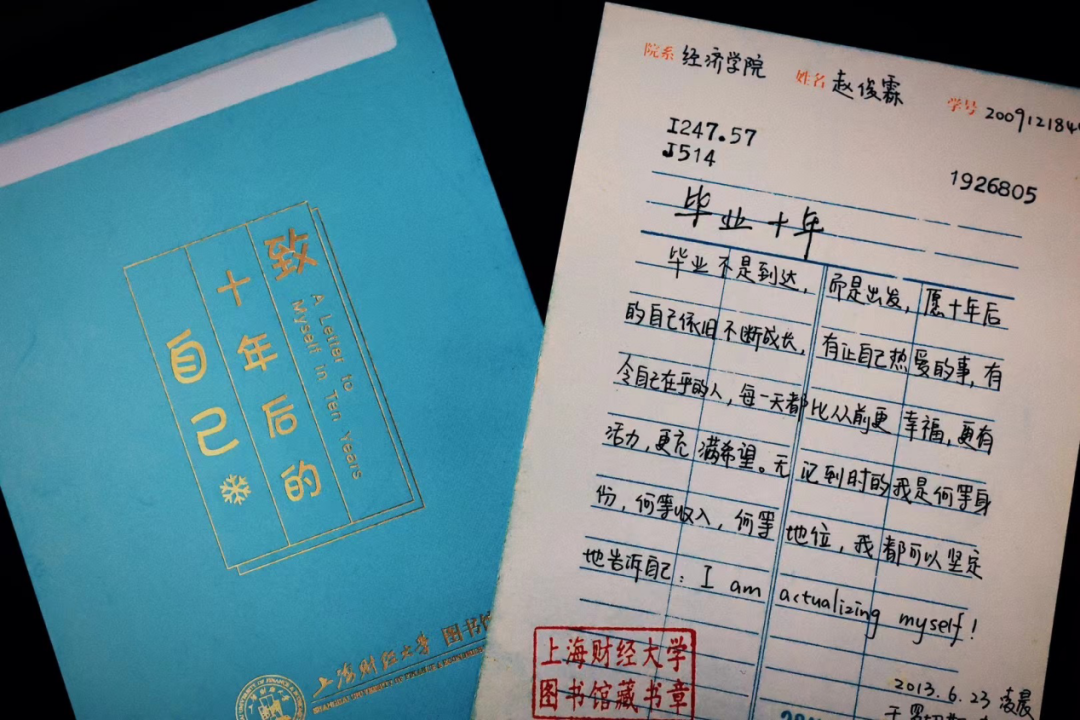 致
十年后的
自己
A Letter to
Myself in Ten Years
上海财经大学 图书馆
院系 经济学院 姓名 赵俊霖 学号 200912184
I247.57
J514
1926805
毕业十年
毕业不是到达，而是出发，愿十年后
的自己依旧不断成长，有让自己热爱的事，有
令自己在乎的人，每一天都比从前更幸福，更有
活力，更充满希望。无论到时的我是何等身
份，何等收入，何等地位，我都可以坚定
地告诉自己：I am actualizing myself!
上海财经大学
图书馆藏书章
2013.6.23 凌晨